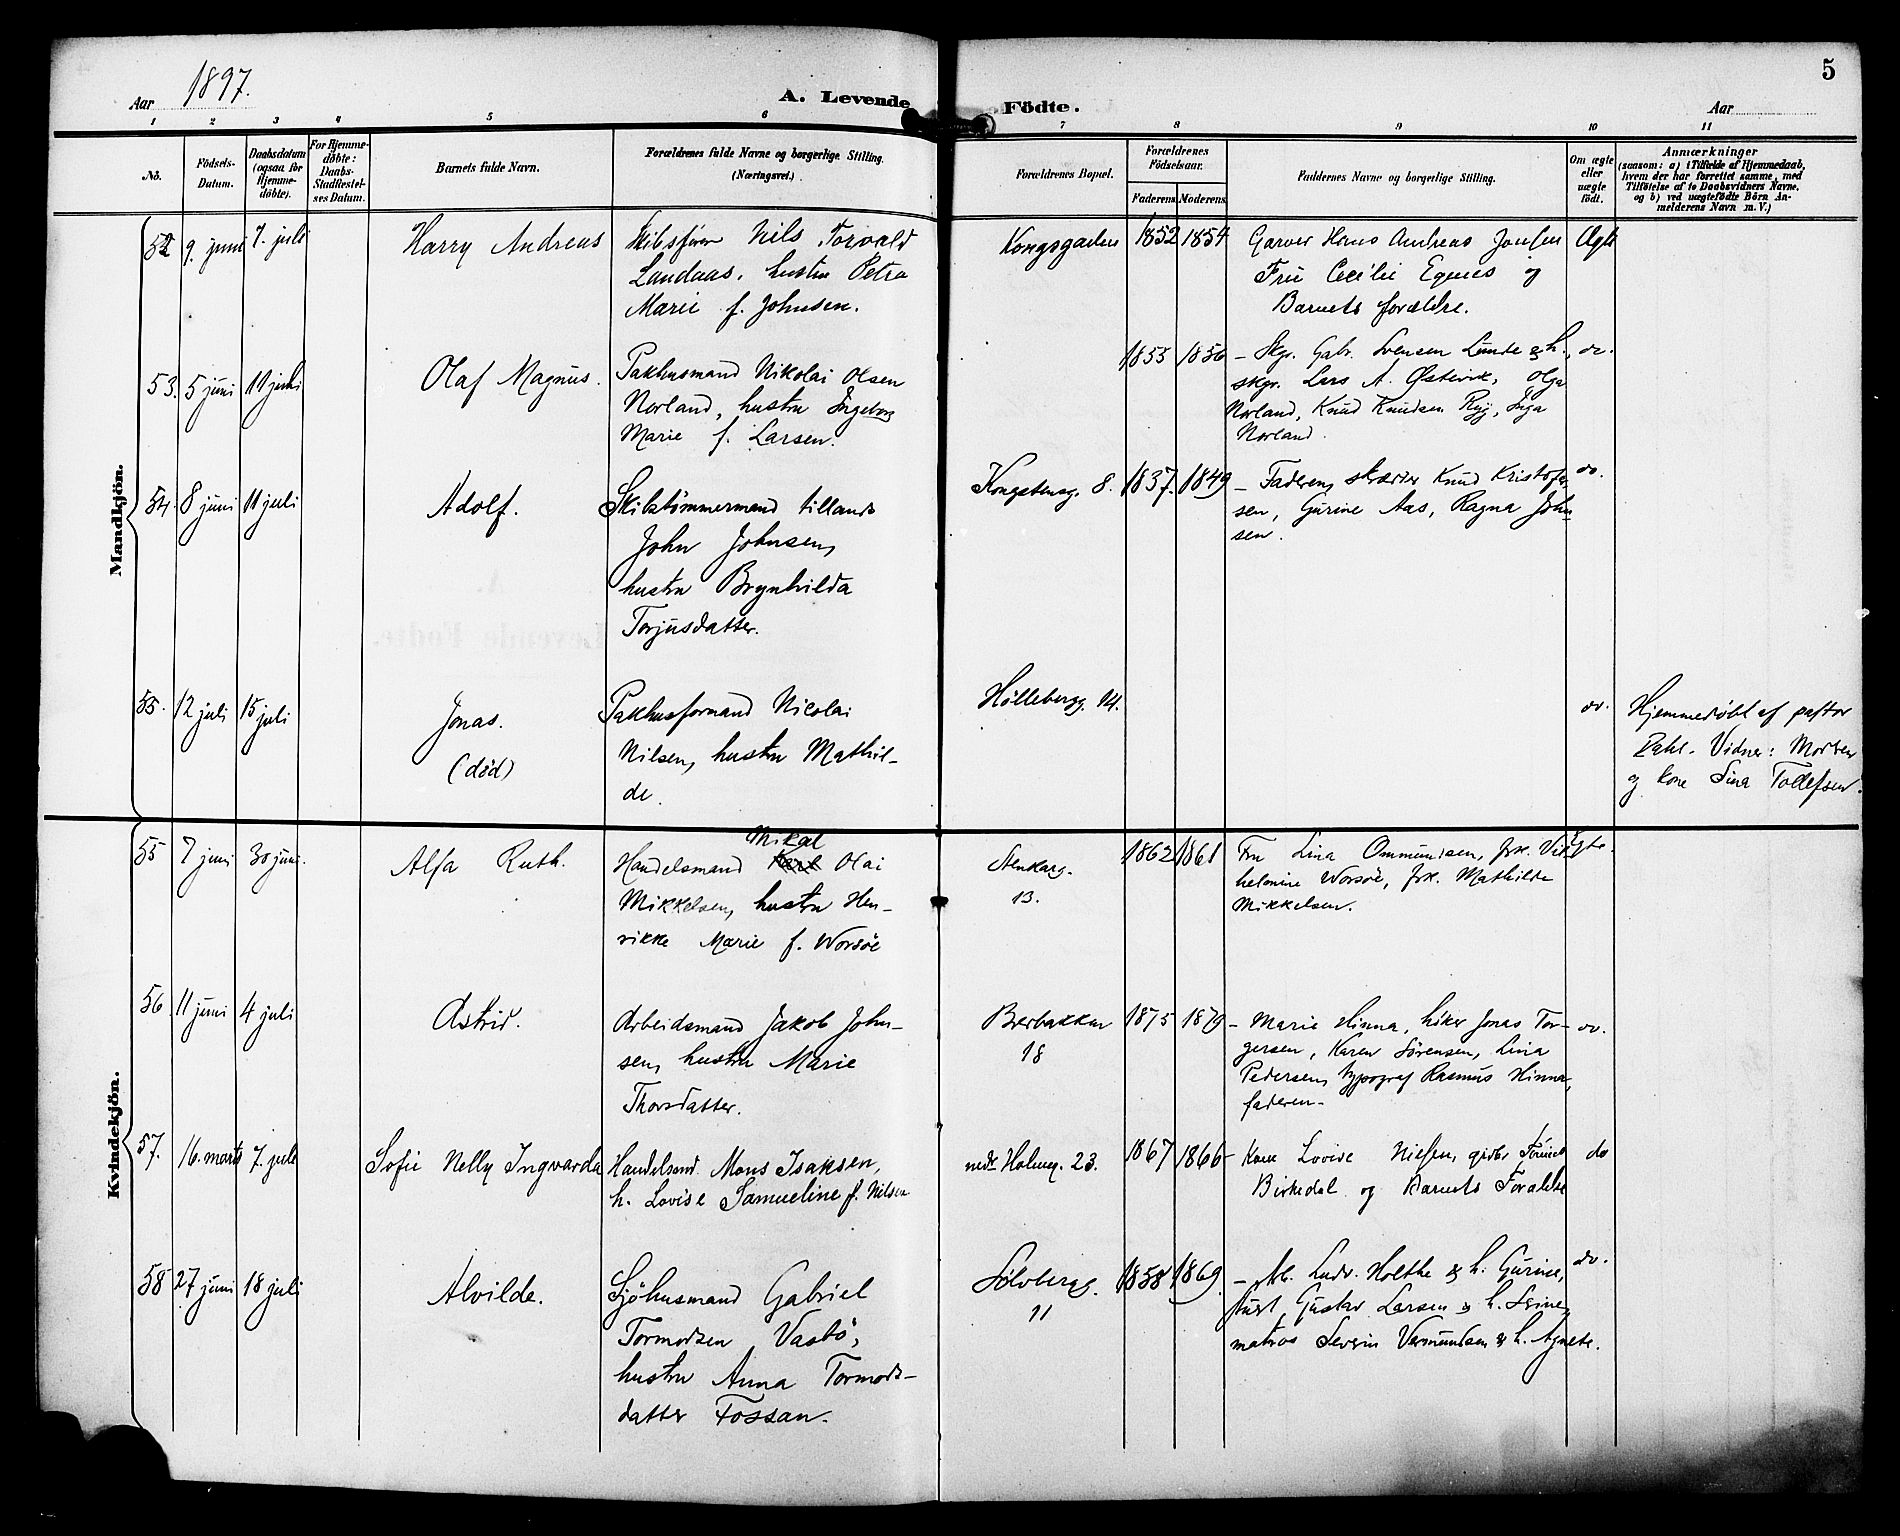 5
Aar 1897.
A. Levende Födte.
Aar
1 2 3 4 5 6 7 8 9 10 11
No.
Födsels-
Datum.
Daabsdatum
(ogsaa for
Hjemme-
döbte).
For Hjemme-
døbte:
Daabs-
Stadfæstel-
ses Datum.
Barnets fulde Navn.
Forældrenes fulde Navne og borgerlige Stilling.
(Næringsvei.)
Forældrenes Bopæl.
Forældrenes
Födselsaar.
Faderens Moderens
Faddernes Navne og borgerlige Stilling.
Om ægte
eller
uægte
født.
Anmærkninger
(saasom: a) i Tilfælde af Hjemmedaab,
hvem der har forrettet samme, med
Tilföielse af to Daabsvidners Navne,
og b) ved uægtefödte Börn An-
melderens Navn m. V.)
Mandkjön.
52 9. juni 7. juli
Harry Andreas
Skibsfører Nils Torvald
Landaas, hustru Petra
Marie f. Johnsen.
Kongsgaden
1852 1854
Garver Hans Andreas Jonsen
Fru Cecilie Egenes og
Barnets forældre.
Ægte
53. 5 juni 11 juli
Olaf Magnus.
Pakhusmand Nikolai Olsen
Norland, hustru Ingeborg
Marie f. Larsen.
1855 1856
– Skgr. Gabr. Svensen Lunde & h.,
skgr. Lars A. Østervik, Olga
Norland, Knud Knudsen Ryg, Inga
Norland.
do.
54. 8 juni 11 juli
Adolf.
Skibstømmermand tillands
John Johnsen,
hustru Brynhilda
Torjusdatter.
Kongstensg. 8.
1837. 1849
– Faderen, skræder Knud Kristofer-
sen, Gurine Aas, Ragna John-
sen.
do.
55. 12 juli 15 juli
Jonas.
(død)
Pakhusformand Nicolai
Nilsen, hustru Mathil-
de.
Hølleberg. 14.
do.
Hjemmedøbt af pastor
Dahl. Vidner: Morten
og kone Sina Tollefsen.
Kvindekjön.
55 7 juni 30 juni.
Alfa Ruth.
Mikal
Handelsmand Karl Olai
Mikkelsen, hustru Hen-
rikke Marie f. Worsöe
Stenkarg.
13.
1862 1861
Fru Lina Ommundsen, frk. Vil-
helmine Worsöe, frk. Mathilde
Mikkelsen.
Ægte.
56. 11 juni 4 juli
Astrid.
Arbeidsmand Jakob John-
sen, hustru Marie
Thorsdatter.
Berbakken
18
1875 1879
– Marie Hinna, hiker Jonas Tor-
gersen, Karen Sørensen, Lina
Pedersen, typograf Rasmus Hinna,
faderen.
do.
57. 16. marts 7. juli
Sofie Nelly Ingvarda
Handelsmd. Mons Isaksen,
h. Lovise Samueline f. Nilsen
nedr Holmeg. 23.
1867 1866
– Kone Lovise Nielsen,
Birkedal og Barnets Forældre
do
58 27 juni 18 juli
Alvilde.
Sjöhusmand Gabriel
Tormodsen Vasbö,
hustru Anna Tormods-
datter Fossan.
Sölvbergg.
11
1858 1869.
– Arb. Ludv. Holthe & h. Gurine,
Gustav Larsen & h. Serine,
matros Severin Vermundsen & h. Agnete.
do.